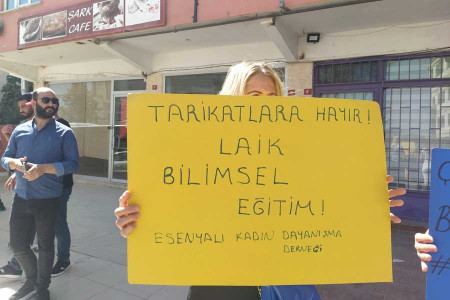 ŞARK
CAFE
TARİKATLARA HAYIR!
LAİK
BİLİMSEL
EĞİTİM!
ESENYALI KADIN DAYANIŞMA
DERNEĞİ